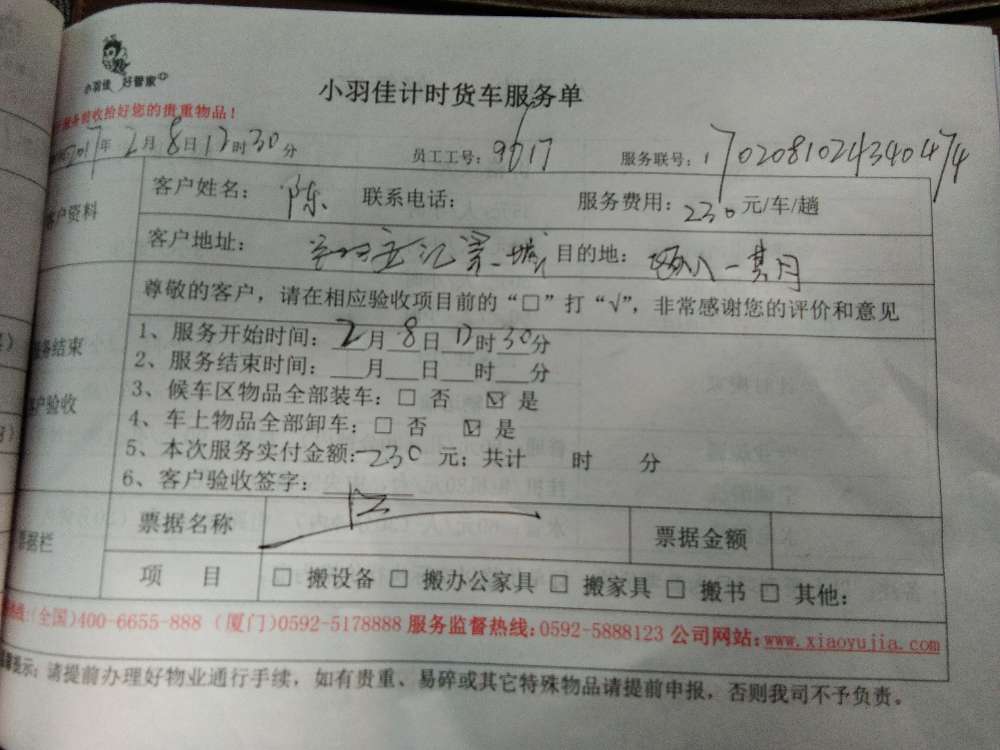 小羽佳 好管家
小羽佳计时货车服务单
服务验收拾好您的贵重物品！
2017年2月8日12时30分 员工工号：9617 服务联号：1702081024340474
客户资料
客户姓名：陈 联系电话： 服务费用：230元/车/趟
客户地址： 目的地：
尊敬的客户，请在相应验收项目前的“□”打“√”，非常感谢您的评价和意见
服务结束
客户验收
1、服务开始时间：2月8日12时30分
2、服务结束时间：___月___日___时___分
3、候车区物品全部装车：□ 否 ☑ 是
4、车上物品全部卸车：□ 否 ☑ 是
5、本次服务实付金额：230 元；共计 时 分
6、客户验收签字：
票据栏
票据名称 票据金额
项 目 □ 搬设备 □ 搬办公家具 □ 搬家具 □ 搬书 □ 其他：
热线：(全国)400-6655-888 (厦门)0592-5178888 服务监督热线：0592-5888123 公司网站：www.xiaoyujia.com
提示：请提前办理好物业通行手续，如有贵重、易碎或其它特殊物品请提前申报，否则我司不予负责。